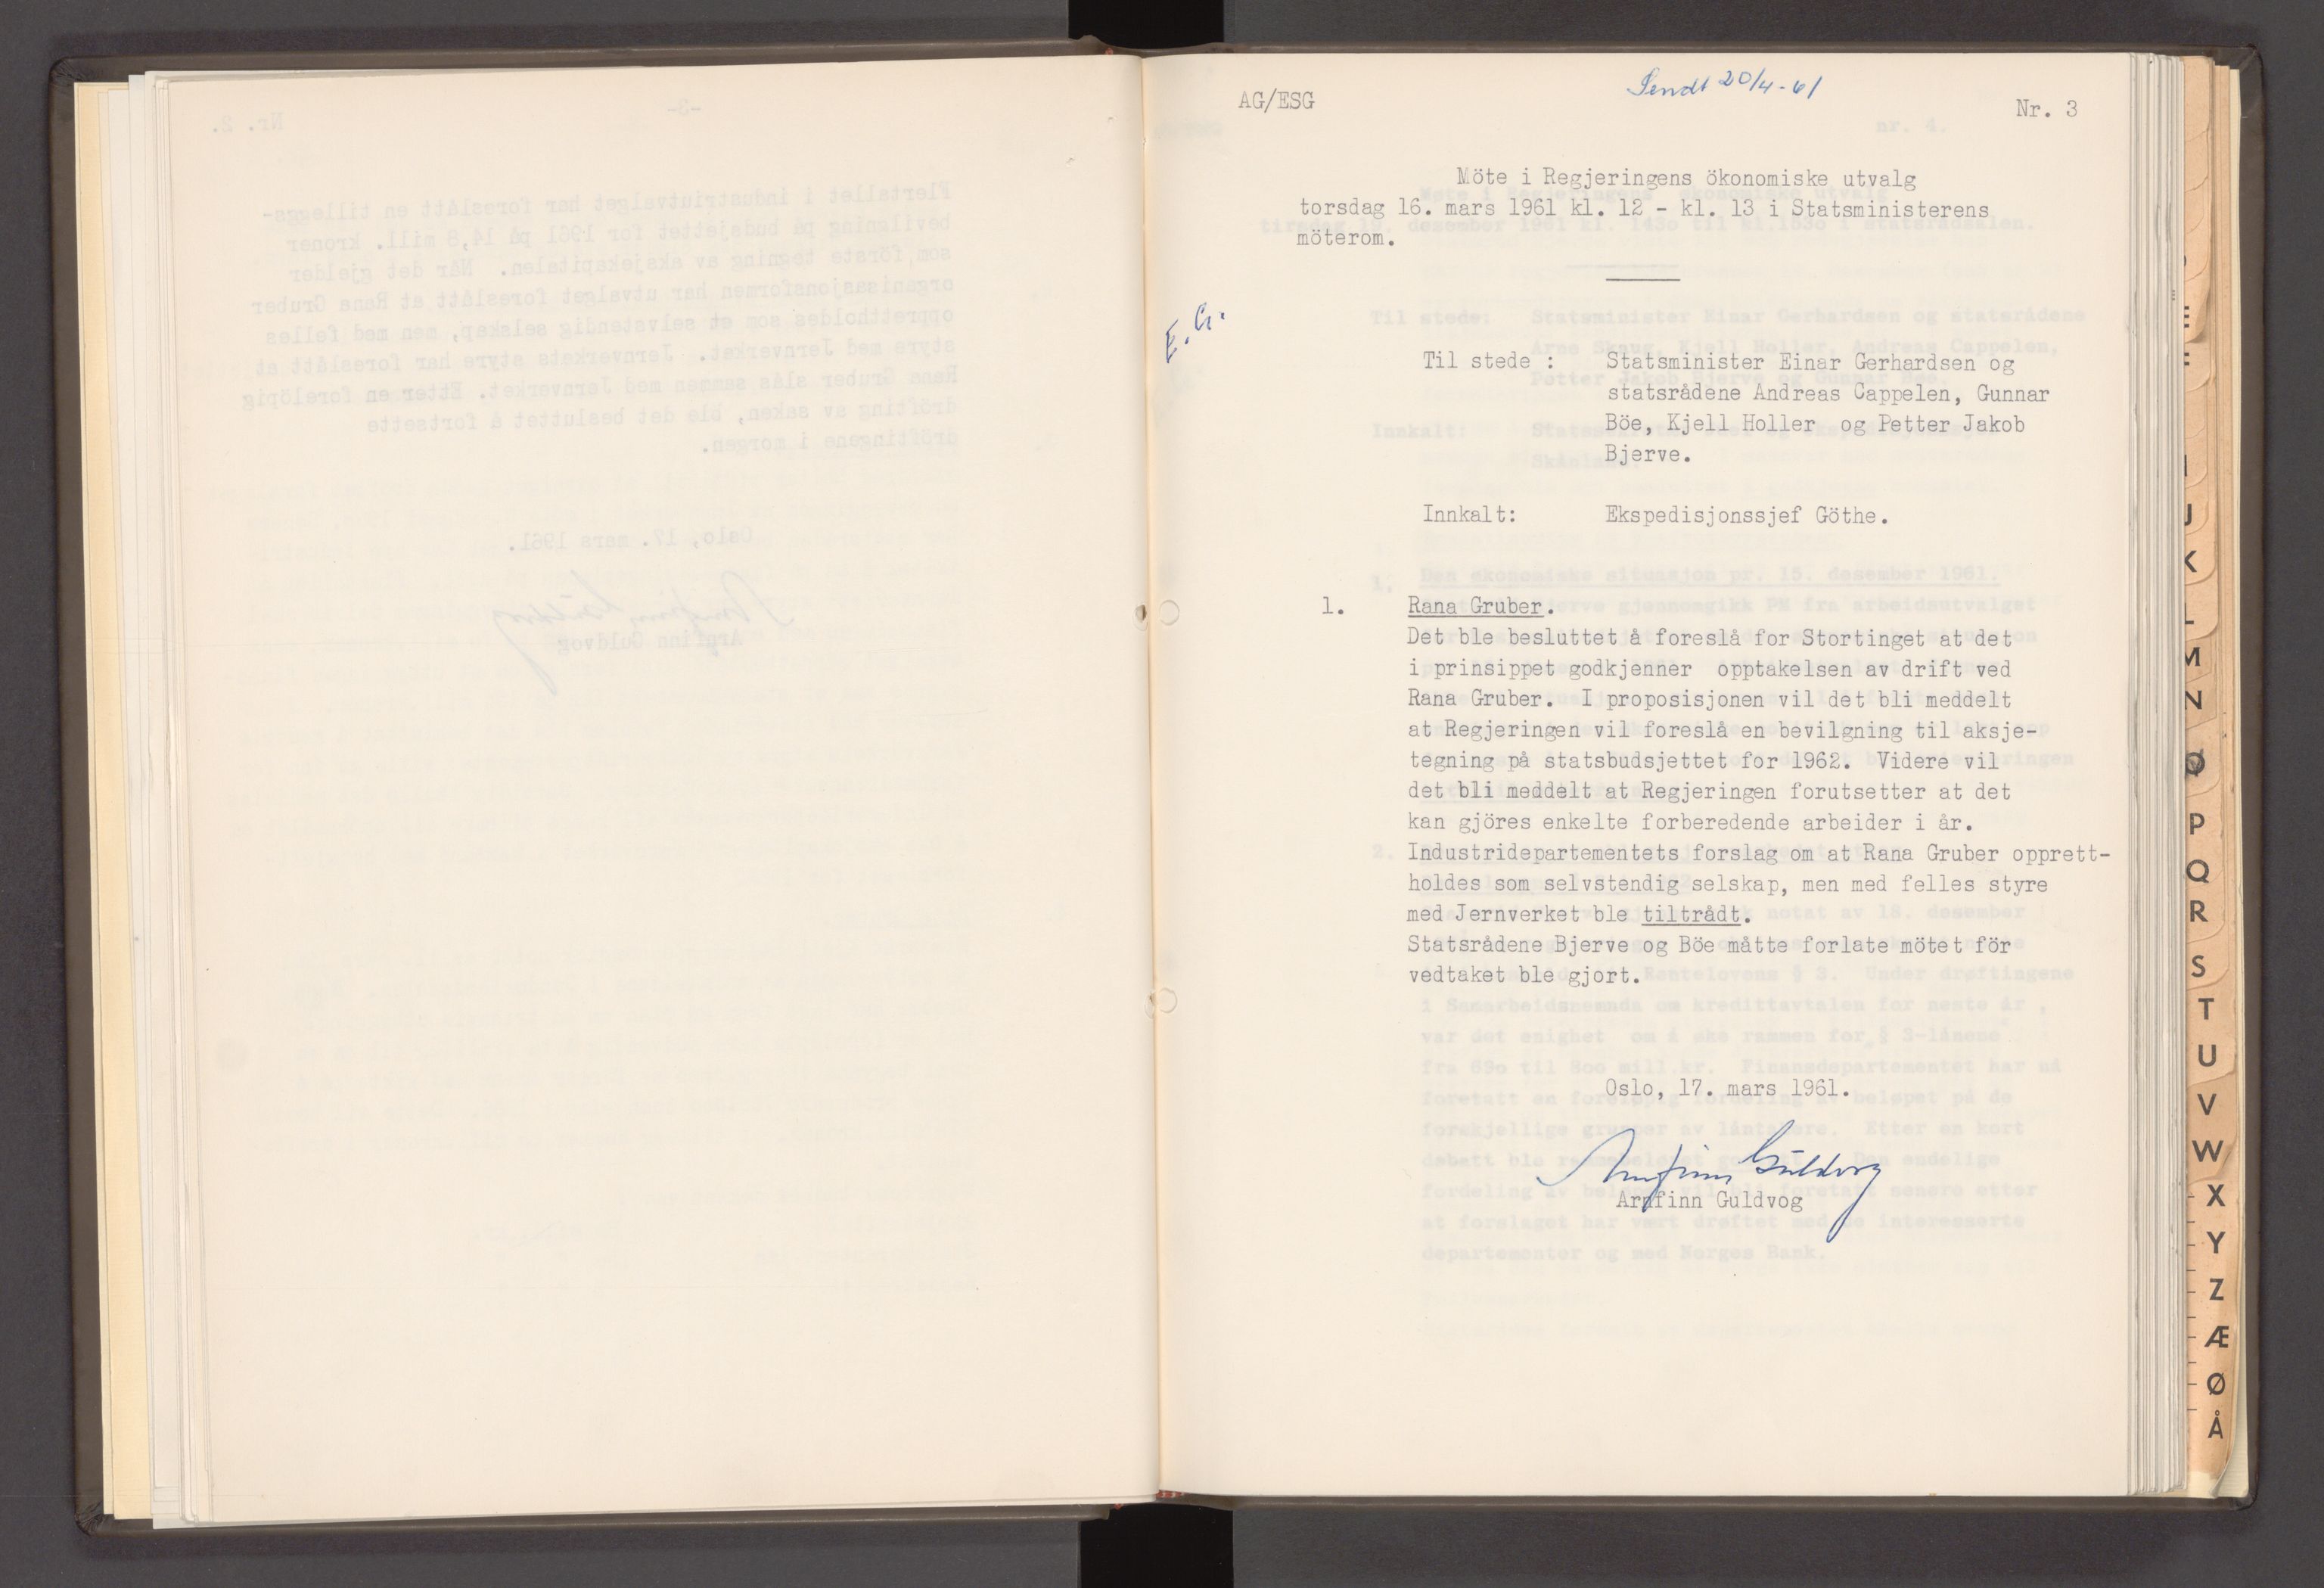 AG/ESG
Sendt 20/4-61
Nr. 3
Möte i Regjeringens ökonomiske utvalg
torsdag 16. mars 1961 kl. 12 - kl. 13 i Statsministerens
möterom.
E. G.
Til stede : Statsminister Einar Gerhardsen og
statsrådene Andreas Cappelen, Gunnar
Böe, Kjell Holler og Petter Jakob
Bjerve.
Innkalt: Ekspedisjonssjef Göthe.
1. Rana Gruber.
Det ble besluttet å foreslå for Stortinget at det
i prinsippet godkjenner opptakelsen av drift ved
Rana Gruber. I proposisjonen vil det bli meddelt
at Regjeringen vil foreslå en bevilgning til aksje-
tegning på statsbudsjettet for 1962. Videre vil
det bli meddelt at Regjeringen forutsetter at det
kan gjöres enkelte forberedende arbeider i år.
Industridepartementets forslag om at Rana Gruber opprett-
holdes som selvstendig selskap, men med felles styre
med Jernverket ble tiltrådt.
Statsrådene Bjerve og Böe måtte forlate mötet för
vedtaket ble gjort.
Oslo, 17. mars 1961.
Arnfinn Guldvog
Arnfinn Guldvog
E
F
I
J
K
L
M
N
Ø
P
Q
R
S
T
U
V
W
X
Y
Z
Æ
Ø
Å